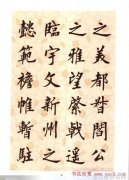 之美都督閻公
之雅望棨戟遥
臨宇文新州之
懿範襜帷暫駐